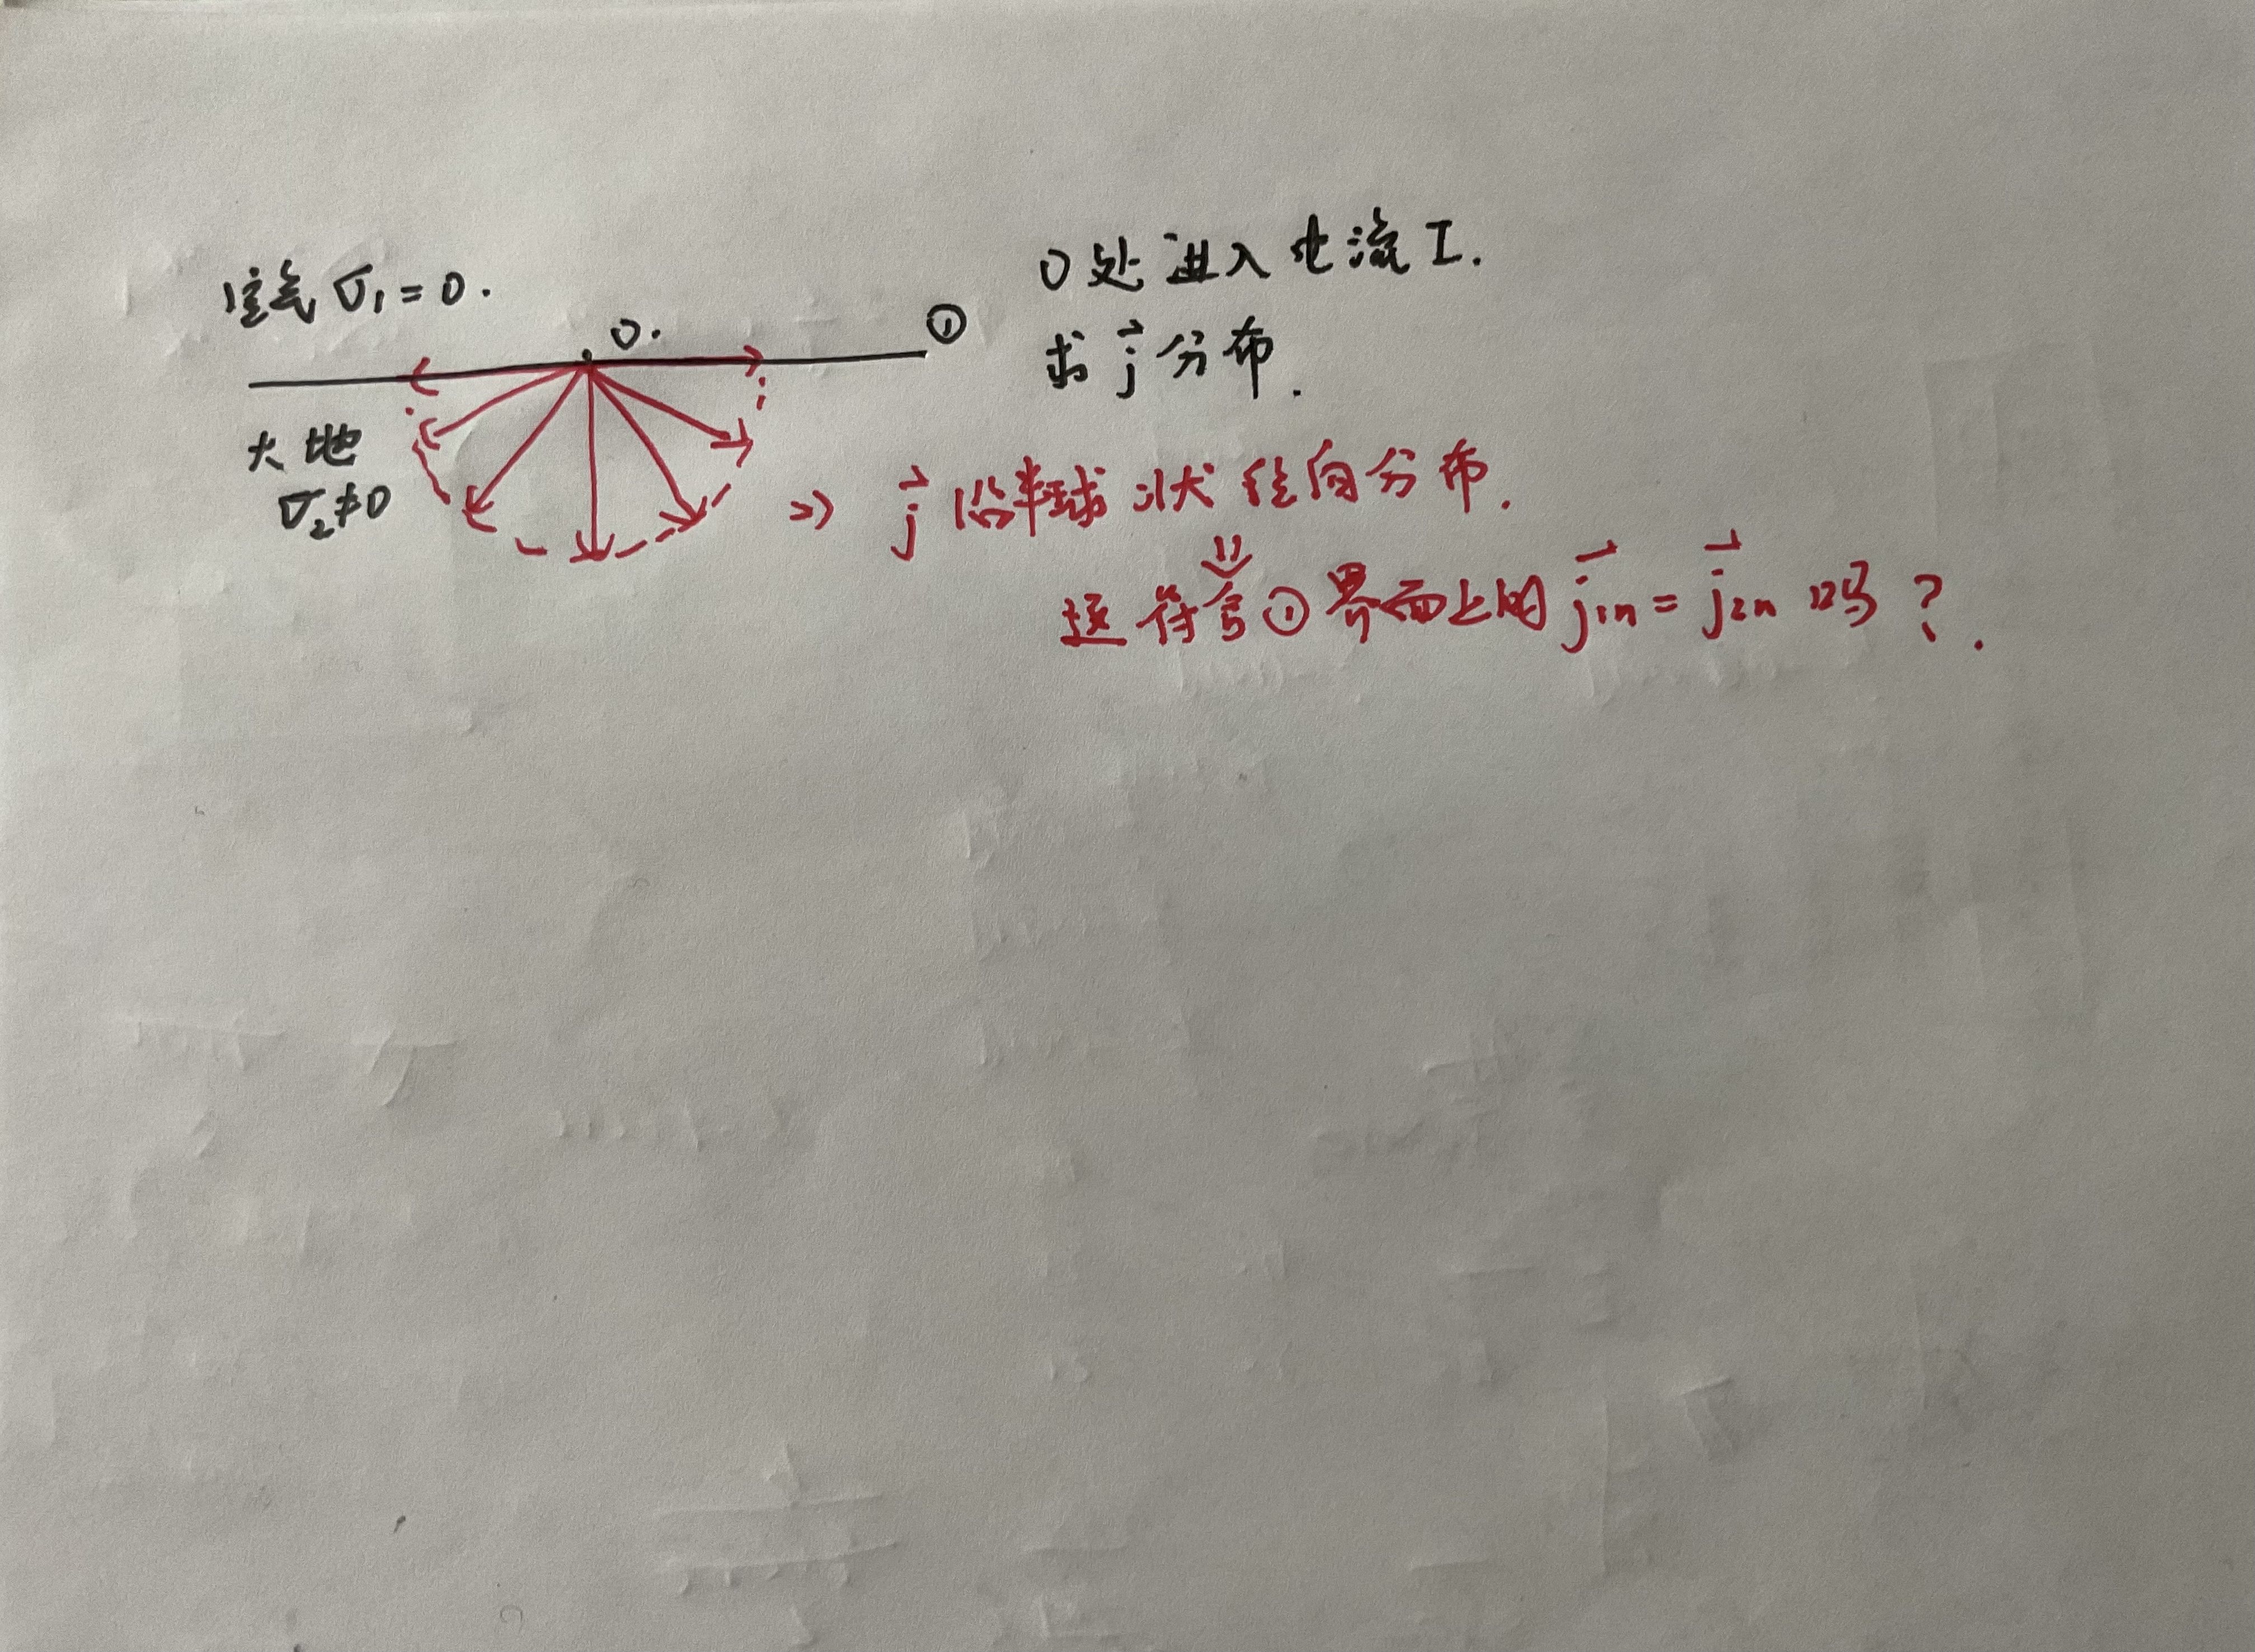 空气 σ₁=0.
O.
①
大地
σ₂≠0
O处进入电流I.
求 j⃗ 分布.
⇒ j⃗ 沿半球状径向分布.
⇓
这符合①界面上的 j⃗₁ₙ = j⃗₂ₙ 吗?.